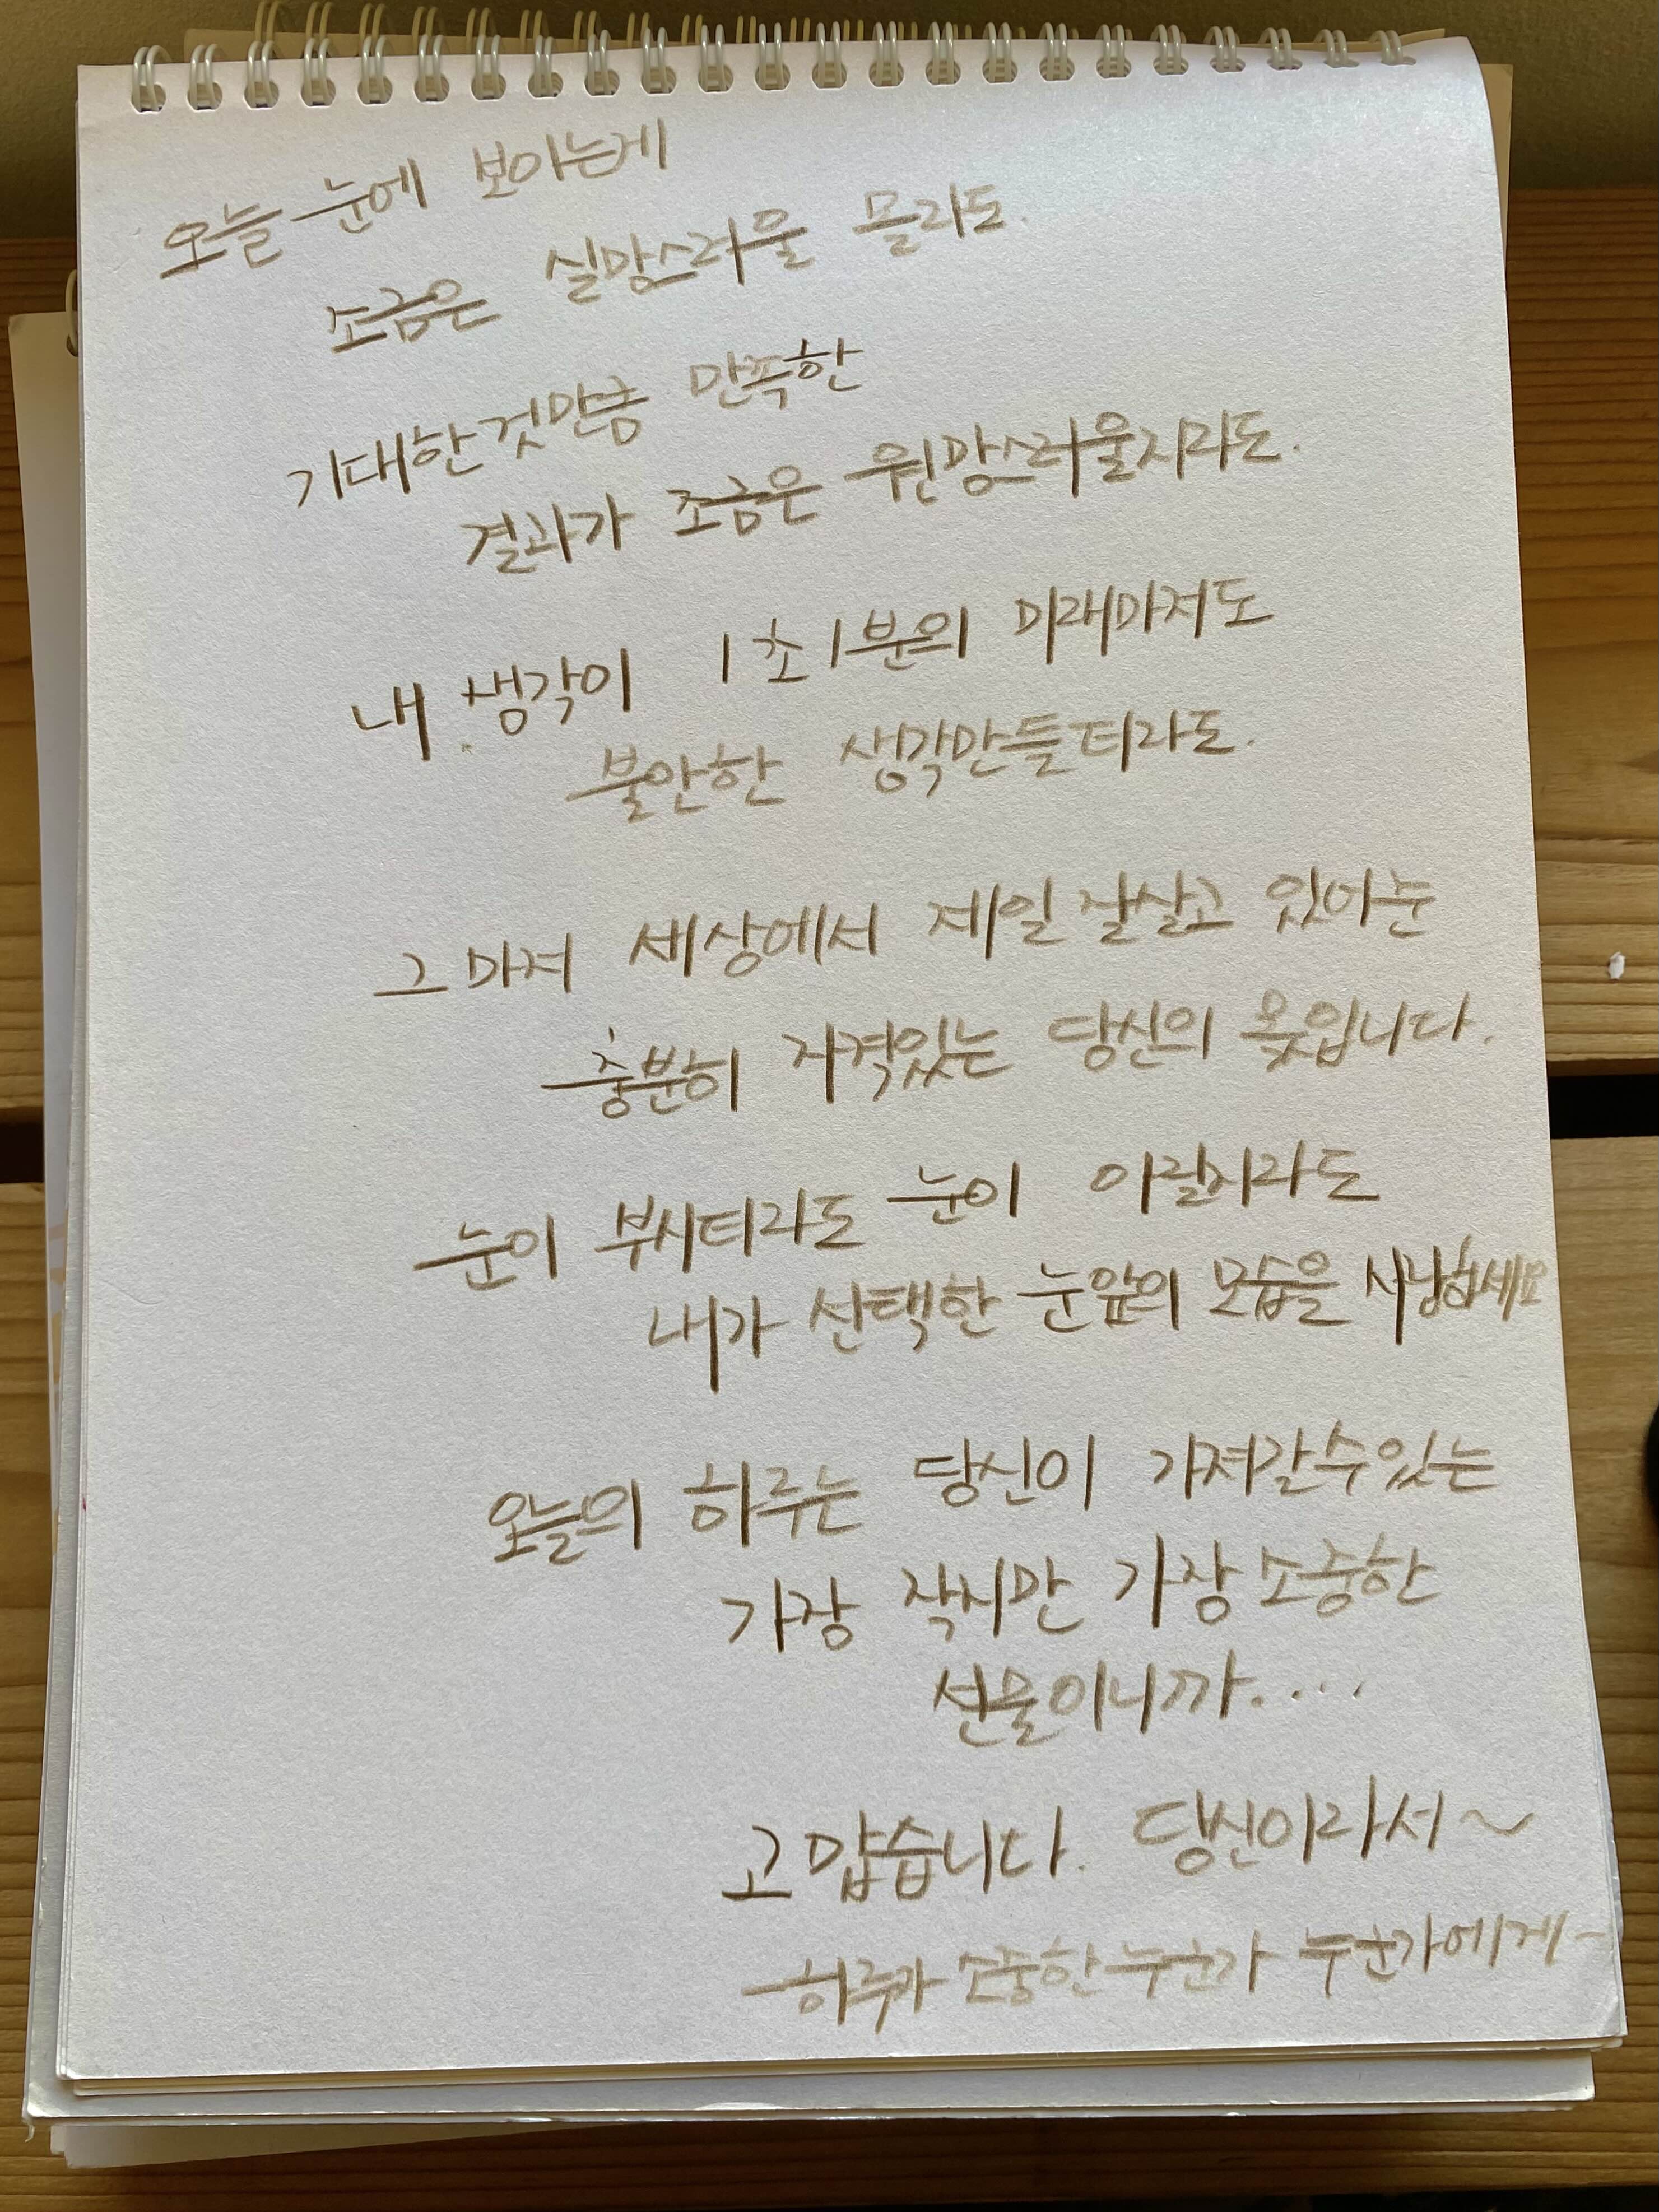 오늘 눈에 보이는게
조금은 실망스러울 몰라도.
기대한것만큼 만족한
결과가 조금은 원망스러울지라도.
내 생각이 1초1분의 미래마저도
불안한 생각만들티라도.
그마저 세상에서 제일 잘살고 있어준
충분히 자격있는 당신의 몫입니다.
눈이 부시티라도 눈이 아릴지라도
내가 선택한 눈앞의 모습을
오늘의 하루는 당신이 가져갈수있는
가장 작지만 가장 소중한
선물이니까....
고맙습니다. 당신이라서~
소중한 누군가 누군가에게-